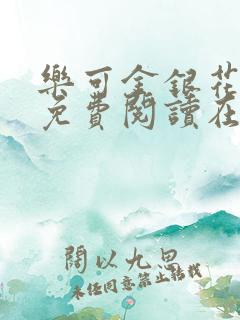 樂可金銀花
免費閱讀在
闊以九思
未經同意禁止轉載